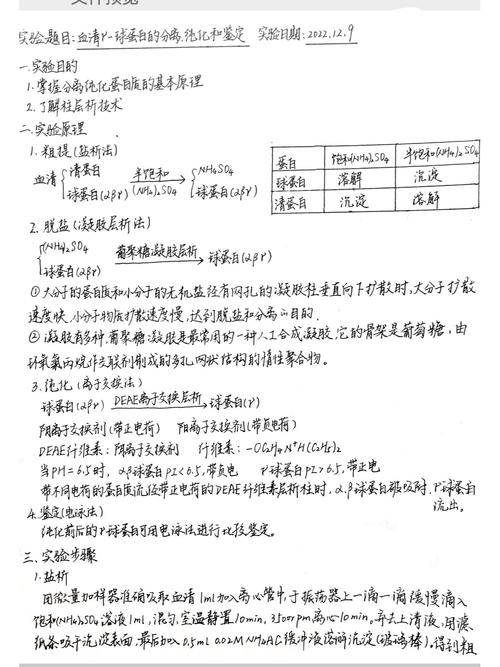 实验题目：血清γ-球蛋白的分离、纯化和鉴定 实验日期：2022.12.9
一.实验目的
1.掌握分离纯化蛋白质的基本原理
2.了解柱层析技术
二.实验原理
1.粗提(盐析法)
血清 清蛋白 球蛋白(αβγ) 半饱和 (NH4)2SO4 NH4SO4 球蛋白(αβγ)
蛋白 饱和(NH4)2SO4 半饱和(NH4)2SO4
球蛋白 溶解 沉淀
清蛋白 沉淀 溶解
2.脱盐(凝胶层析法)
(NH4)2SO4 球蛋白(αβγ) 葡聚糖凝胶层析 球蛋白(αβγ)
①大分子的蛋白质和小分子的无机盐经有网孔的凝胶柱垂直向下扩散时,大分子扩散
速度快,小分子物质扩散速度慢,达到脱盐和分离的目的.
②凝胶有多种,葡聚糖凝胶是最常用的一种人工合成凝胶,它的骨架是葡萄糖,由
环氧氯丙烷作交联剂制成的多孔网状结构的惰性聚合物。
3.纯化(离子交换法)
球蛋白(αβγ) DEAE离子交换层析 球蛋白(γ)
阴离子交换剂(带正电荷) 阳离子交换剂(带负电荷)
DEAE纤维素:阴离子交换剂 纤维素:-OC2H4N+H(C2H5)2
当PH=6.5时, αβ球蛋白PI<6.5,带负电 γ球蛋白PI>6.5,带正电
带不同电荷的蛋白质流经带正电荷的DEAE纤维素层析柱时,α.β球蛋白被吸附.γ球蛋白
流出。
4.鉴定(电泳法)
纯化前后的γ球蛋白可用电泳法进行比较鉴定。
三.实验步骤
1.盐析
用微量加样器准确吸取血清1ml加入离心管中,于振荡器上一滴一滴缓慢滴入
饱和(NH4)2SO4溶液1ml,混匀,室温静置10min,3500rpm离心10min。弃去上清液,用滤
纸条吸干沉淀表面,最后加入0.5ml 0.02M NH4AC缓冲液溶解沉淀(玻璃棒)。得到粗